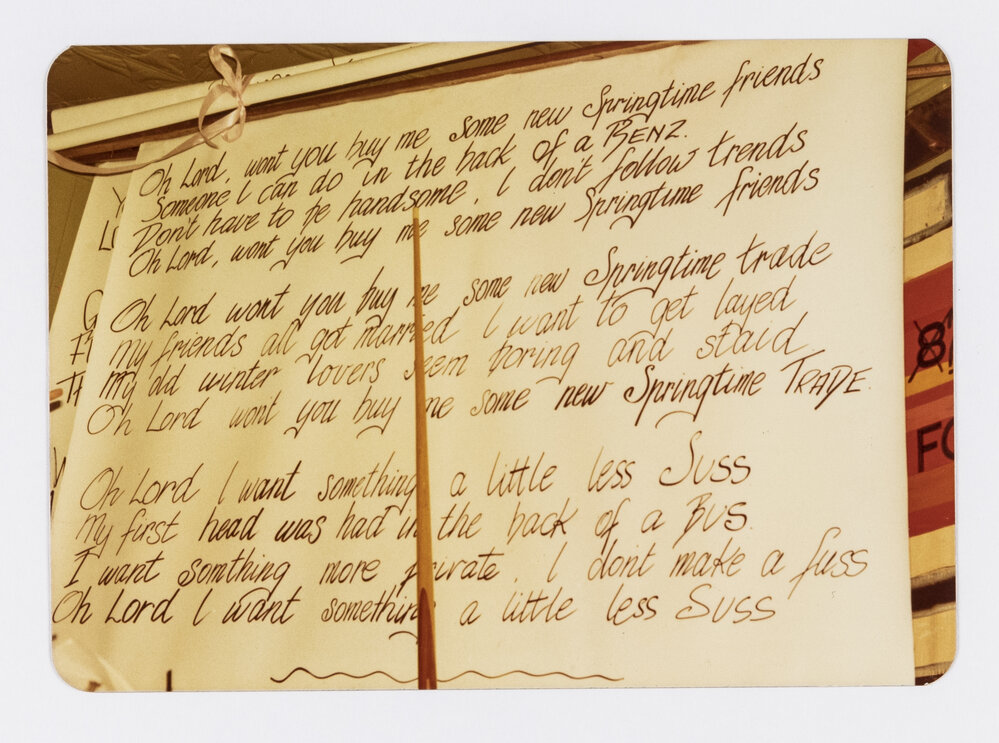 Oh Lord, wont you buy me some new Springtime friends
Someone I can do in the back of a BENZ.
Don't have to be handsome, I don't follow trends
Oh Lord, wont you buy me some new Springtime friends
Oh Lord wont you buy me some new Springtime trade
My friends all got married I want to get layed
My old winter lovers seem boring and staid
Oh Lord wont you buy me some new Springtime TRADE.
Oh Lord I want something a little less Suss
My first head was had in the back of a BUS.
I want somthing more private. I dont make a fuss
Oh Lord I want something a little less Suss